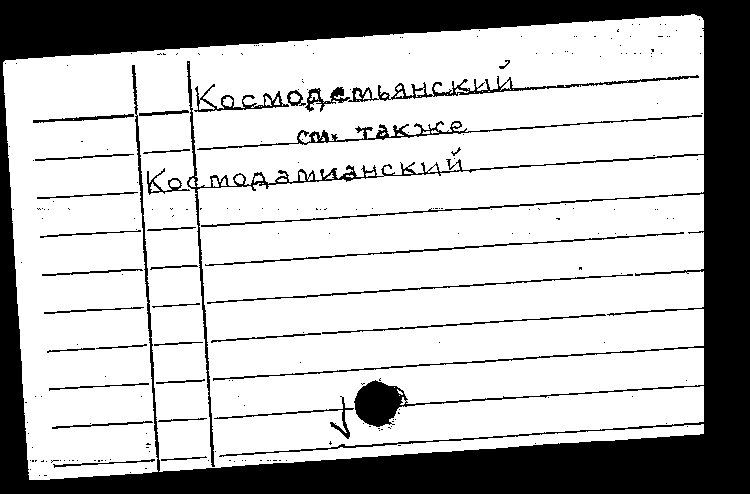 Космодемьянский
см. также
Космодамианский